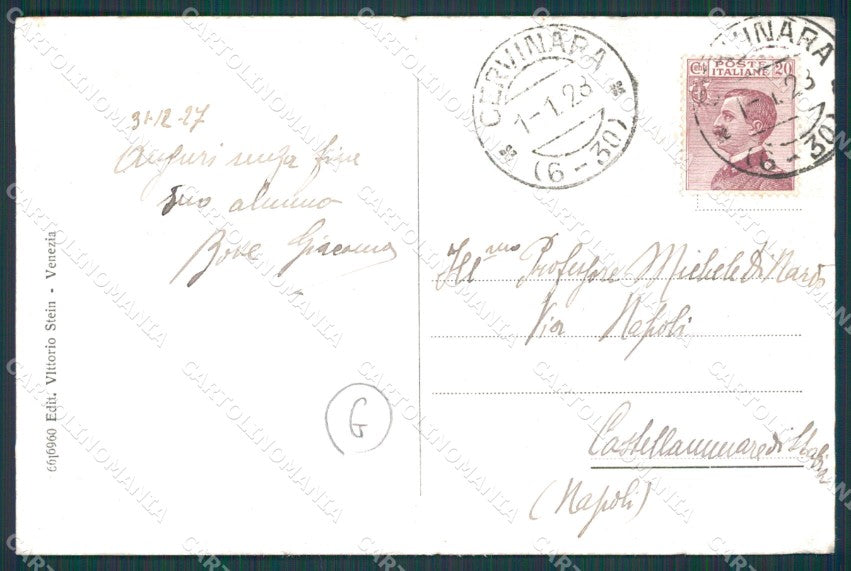 CERVINARA
1-1.28
(6-30)
CERVINARA
1-1.28
(6-30)
Cmi 20
POSTE
ITALIANE
31-12-27
Auguri senza fine
suo alunno
Bove Giacomo
Ill.mo Professore Michele Di Nardo
Via Napoli
Castellammare di Stabia
(Napoli)
G
6616960 Edit. Vittorio Stein - Venezia
CARTOLINOMANIA